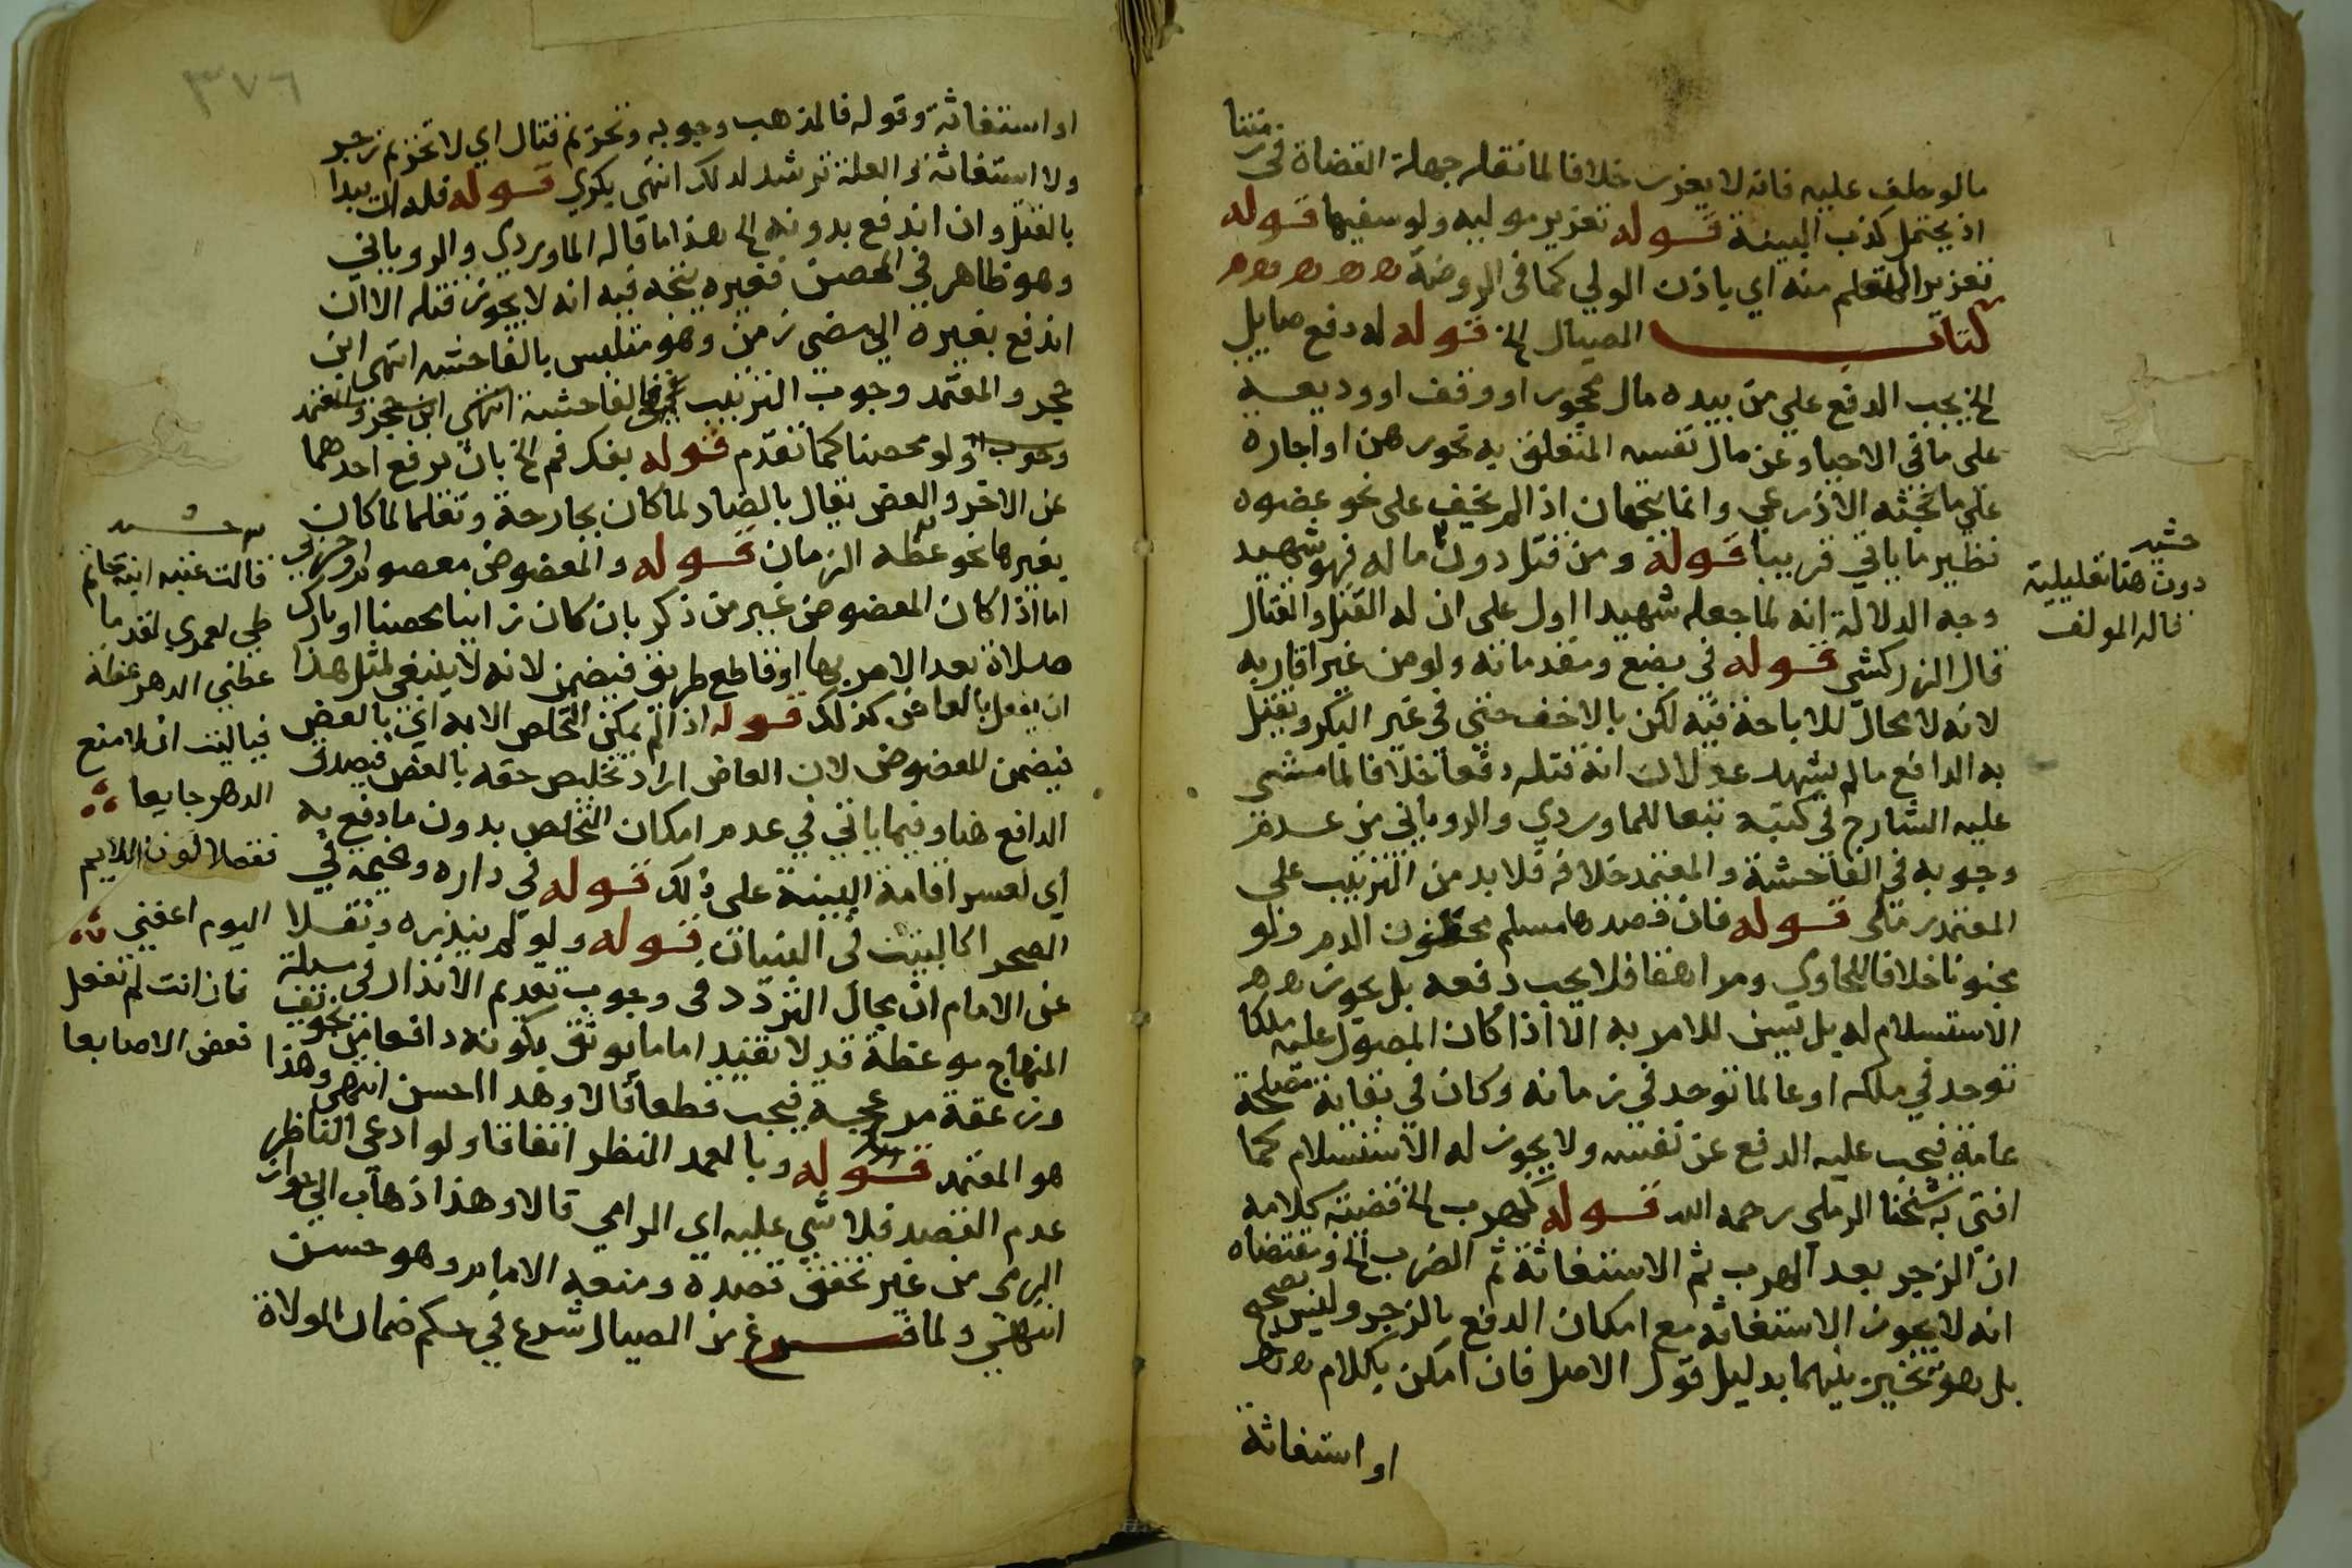 مالو حلف عليه فانه لا يعزر خلافا لما نقله جهلة القضاة في زمننا
اذ يحتمل كذب البينة قوله تعزير موليه ولو سفيها قوله
تعزير المتعلم منه اي باذن الولي كما في الروضة
كتاب الصيال الخ قوله له دفع صايل
الخ يجب الدفع علي من بيده مال محجور او وقف او وديعة
على ما في الاحيا وعن مال نفسه المتعلق به نحو رهن او اجارة
علي ما بحثه الاذرعي وانما يتجهان اذا لم يخف على نحو عضوه
نظير ما ياتي قريبا قوله ومن قتل دون ماله فهو شهيد
وجه الدلالة انه لما جعله شهيدا اول على ان له القتل والقتال
قال الزركشي قوله في بضع ومقدماته ولو من غير اقاربه
لانه لا مجال للاباحة فيه لكن بالاخف حتي في غير البكر ويقتل
به الدافع مالم يشهد عدلان انه قتله دفعا خلافا لما مشي
عليه الشارح في كتبه تبعا للماوردي والروياني من عدم
وجوبه في الفاحشة والمعتمد خلافه فلا بد من الترتيب على
المعتمد رملي قوله فان قصدها مسلم محقون الدم ولو
مجنونا خلافا للحاوي ومراهقا فلا يجب دفعه بل يجوز
الاستسلام له بل يسن للامر به الا اذا كان المصول عليه ملكا
توحد في ملكه او عالما توحد في زمانه وكان في بقائه مصلحة
عامة فيجب عليه الدفع عن نفسه ولا يجوز له الاستسلام كما
افتي به شيخنا الرملي رحمه الله قوله لهرب الخ قضية كلامه
ان الزجر بعد الهرب ثم الاستغاثة ثم الضرب الخ ومقتضاه
انه لا يجوز الاستغاثة مع امكان الدفع بالزجر وليس بصحيح
بل هو تخيير بينهما بدليل قول الاصل فان امكن بكلام
او استغاثة
حشيد
دون هنا تعليلية
قاله المولف
٣٧٦
او استغاثة وقوله فالمذهب وجوبه وتحريم قتال اي لا تحريم زجر
ولا استغاثة والعلة ترشد لذلك انتهى بكري قوله فله ان يبدا
بالقتل وان اندفع بدونه الخ هذا ما قاله الماوردي والروياني
وهو ظاهر في المحصن فغيره يتجه فيه انه لا يجوز قتله الا ان
اندفع بغيره الي مضي زمن وهو متلبس بالفاحشه انتهى ابن
حجر والمعتمد وجوب الترتيب في الفاحشة انتهى ابن حجر والمعتمد
وجوب ولو محصنا كما تقدم قوله بفك فم الخ بان يرفع احدهما
عن الاخر والعض يقال بالضاد لما كان بجارحة وتقلما لما كان
بغيرها نحو عظه الزمان قوله والمعضوض معصوم او حربي
اما اذا كان المعضوض غير من ذكر بان كان زانيا محصنا او تارك
صلاة بعد الامر بها او قاطع طريق فيضمن لانه لا ينبغي لمثل هذا
ان يفعل بالعاض كذلك قوله اذا لم يمكن التخلص الا به اي بالعض
فيضمن للمعضوض لان العاض اراد تخليص حقه بالعض فيصدق
الدافع هنا وفيما ياتي في عدم امكان التخلص بدون ما دفع به
اي لعسر اقامة البينة على ذلك قوله في داره وخيمة في
الصحرا كالبيت في البنيان قوله ولو لم ينذره ونقلا
عن الامام ان مجال التردد في وجوب تقديم الانذار في مسئلة
المنهاج موعظة قد لا تفيد اما ما يوثق بكونه دافعا من تخويف
وزعقة مزعجة فيجب قطعا قالا وهذا احسن انتهى وهذا
هو المعتمد قوله وبالعمد النظر اتفاقا ولو ادعى الناظر
عدم القصد فلا شي عليه اي الرامي قالا وهذا ذهاب الي جواز
الرمي من غير تحقق قصده ومنعه الامام وهو حسن
انتهى ولما فرغ من الصيال شرع في حكم ضمان الولاة
قالت عتبه ابنة حاتم
طي لعمري لقدما
عظني الدهر عظة
فياليت ان لا امنع
الدهر جايعا
فقولا لون اللايم
اليوم اعفني
فان انت لم تفعل
فعض الاصابعا